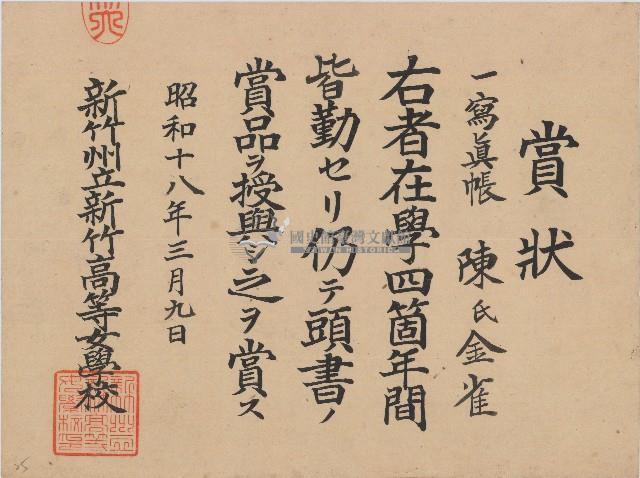 賞狀
一寫眞帳 陳氏金雀
右者在學四箇年間
皆勤セリ仍テ頭書ノ
賞品ヲ授與シ之ヲ賞ス
昭和十八年三月九日
新竹州立新竹高等女學校
國史館臺灣文獻館
TAIWAN HISTORICA